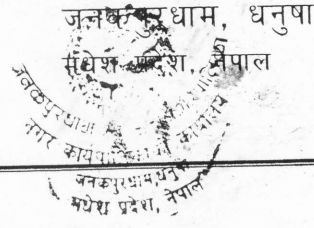 जनकपुरधाम, धनुषा
मधेश प्रदेश, नेपाल
जनकपुरधाम
नगर कार्यपालिकाको कार्यालय
जनकपुरधाम, धनुषा
मधेश प्रदेश, नेपाल